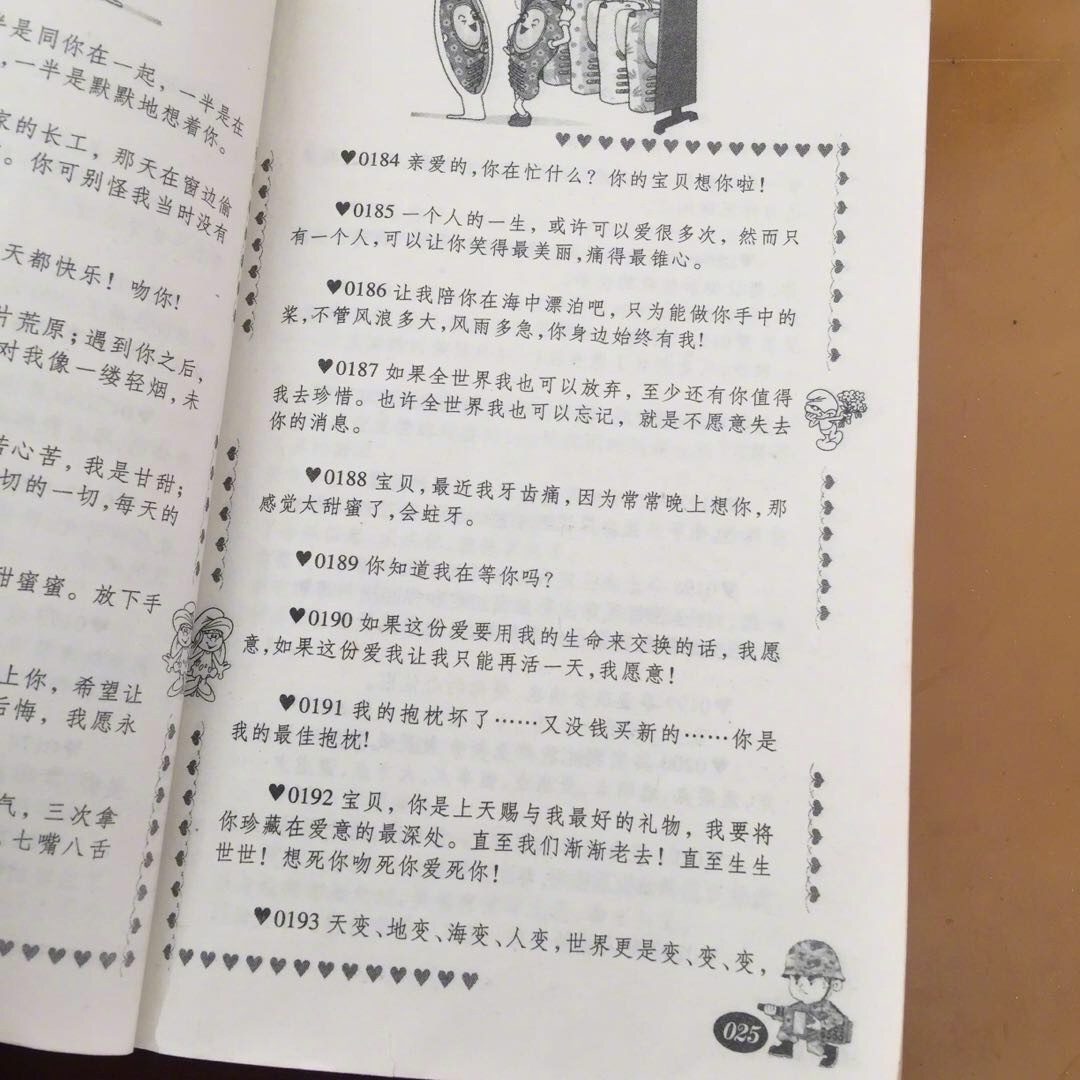 半是同你在一起，一半是在
，一半是默默地想着你。
家的长工，那天在窗边偷
。你可别怪我当时没有
天都快乐！吻你！
片荒原；遇到你之后，
对我像一缕轻烟，未
苦心苦，我是甘甜；
切的一切，每天的
甜蜜蜜。放下手
上你，希望让
后悔，我愿永
气，三次拿
，七嘴八舌
♥0184 亲爱的，你在忙什么？你的宝贝想你啦！
♥0185 一个人的一生，或许可以爱很多次，然而只
有一个人，可以让你笑得最美丽，痛得最锥心。
♥0186 让我陪你在海中漂泊吧，只为能做你手中的
桨，不管风浪多大，风雨多急，你身边始终有我！
♥0187 如果全世界我也可以放弃，至少还有你值得
我去珍惜。也许全世界我也可以忘记，就是不愿意失去
你的消息。
♥0188 宝贝，最近我牙齿痛，因为常常晚上想你，那
感觉太甜蜜了，会蛀牙。
♥0189 你知道我在等你吗？
♥0190 如果这份爱要用我的生命来交换的话，我愿
意，如果这份爱我让我只能再活一天，我愿意！
♥0191 我的抱枕坏了……又没钱买新的……你是
我的最佳抱枕！
♥0192 宝贝，你是上天赐与我最好的礼物，我要将
你珍藏在爱意的最深处。直至我们渐渐老去！直至生生
世世！想死你吻死你爱死你！
♥0193 天变、地变、海变、人变，世界更是变、变、变，
025